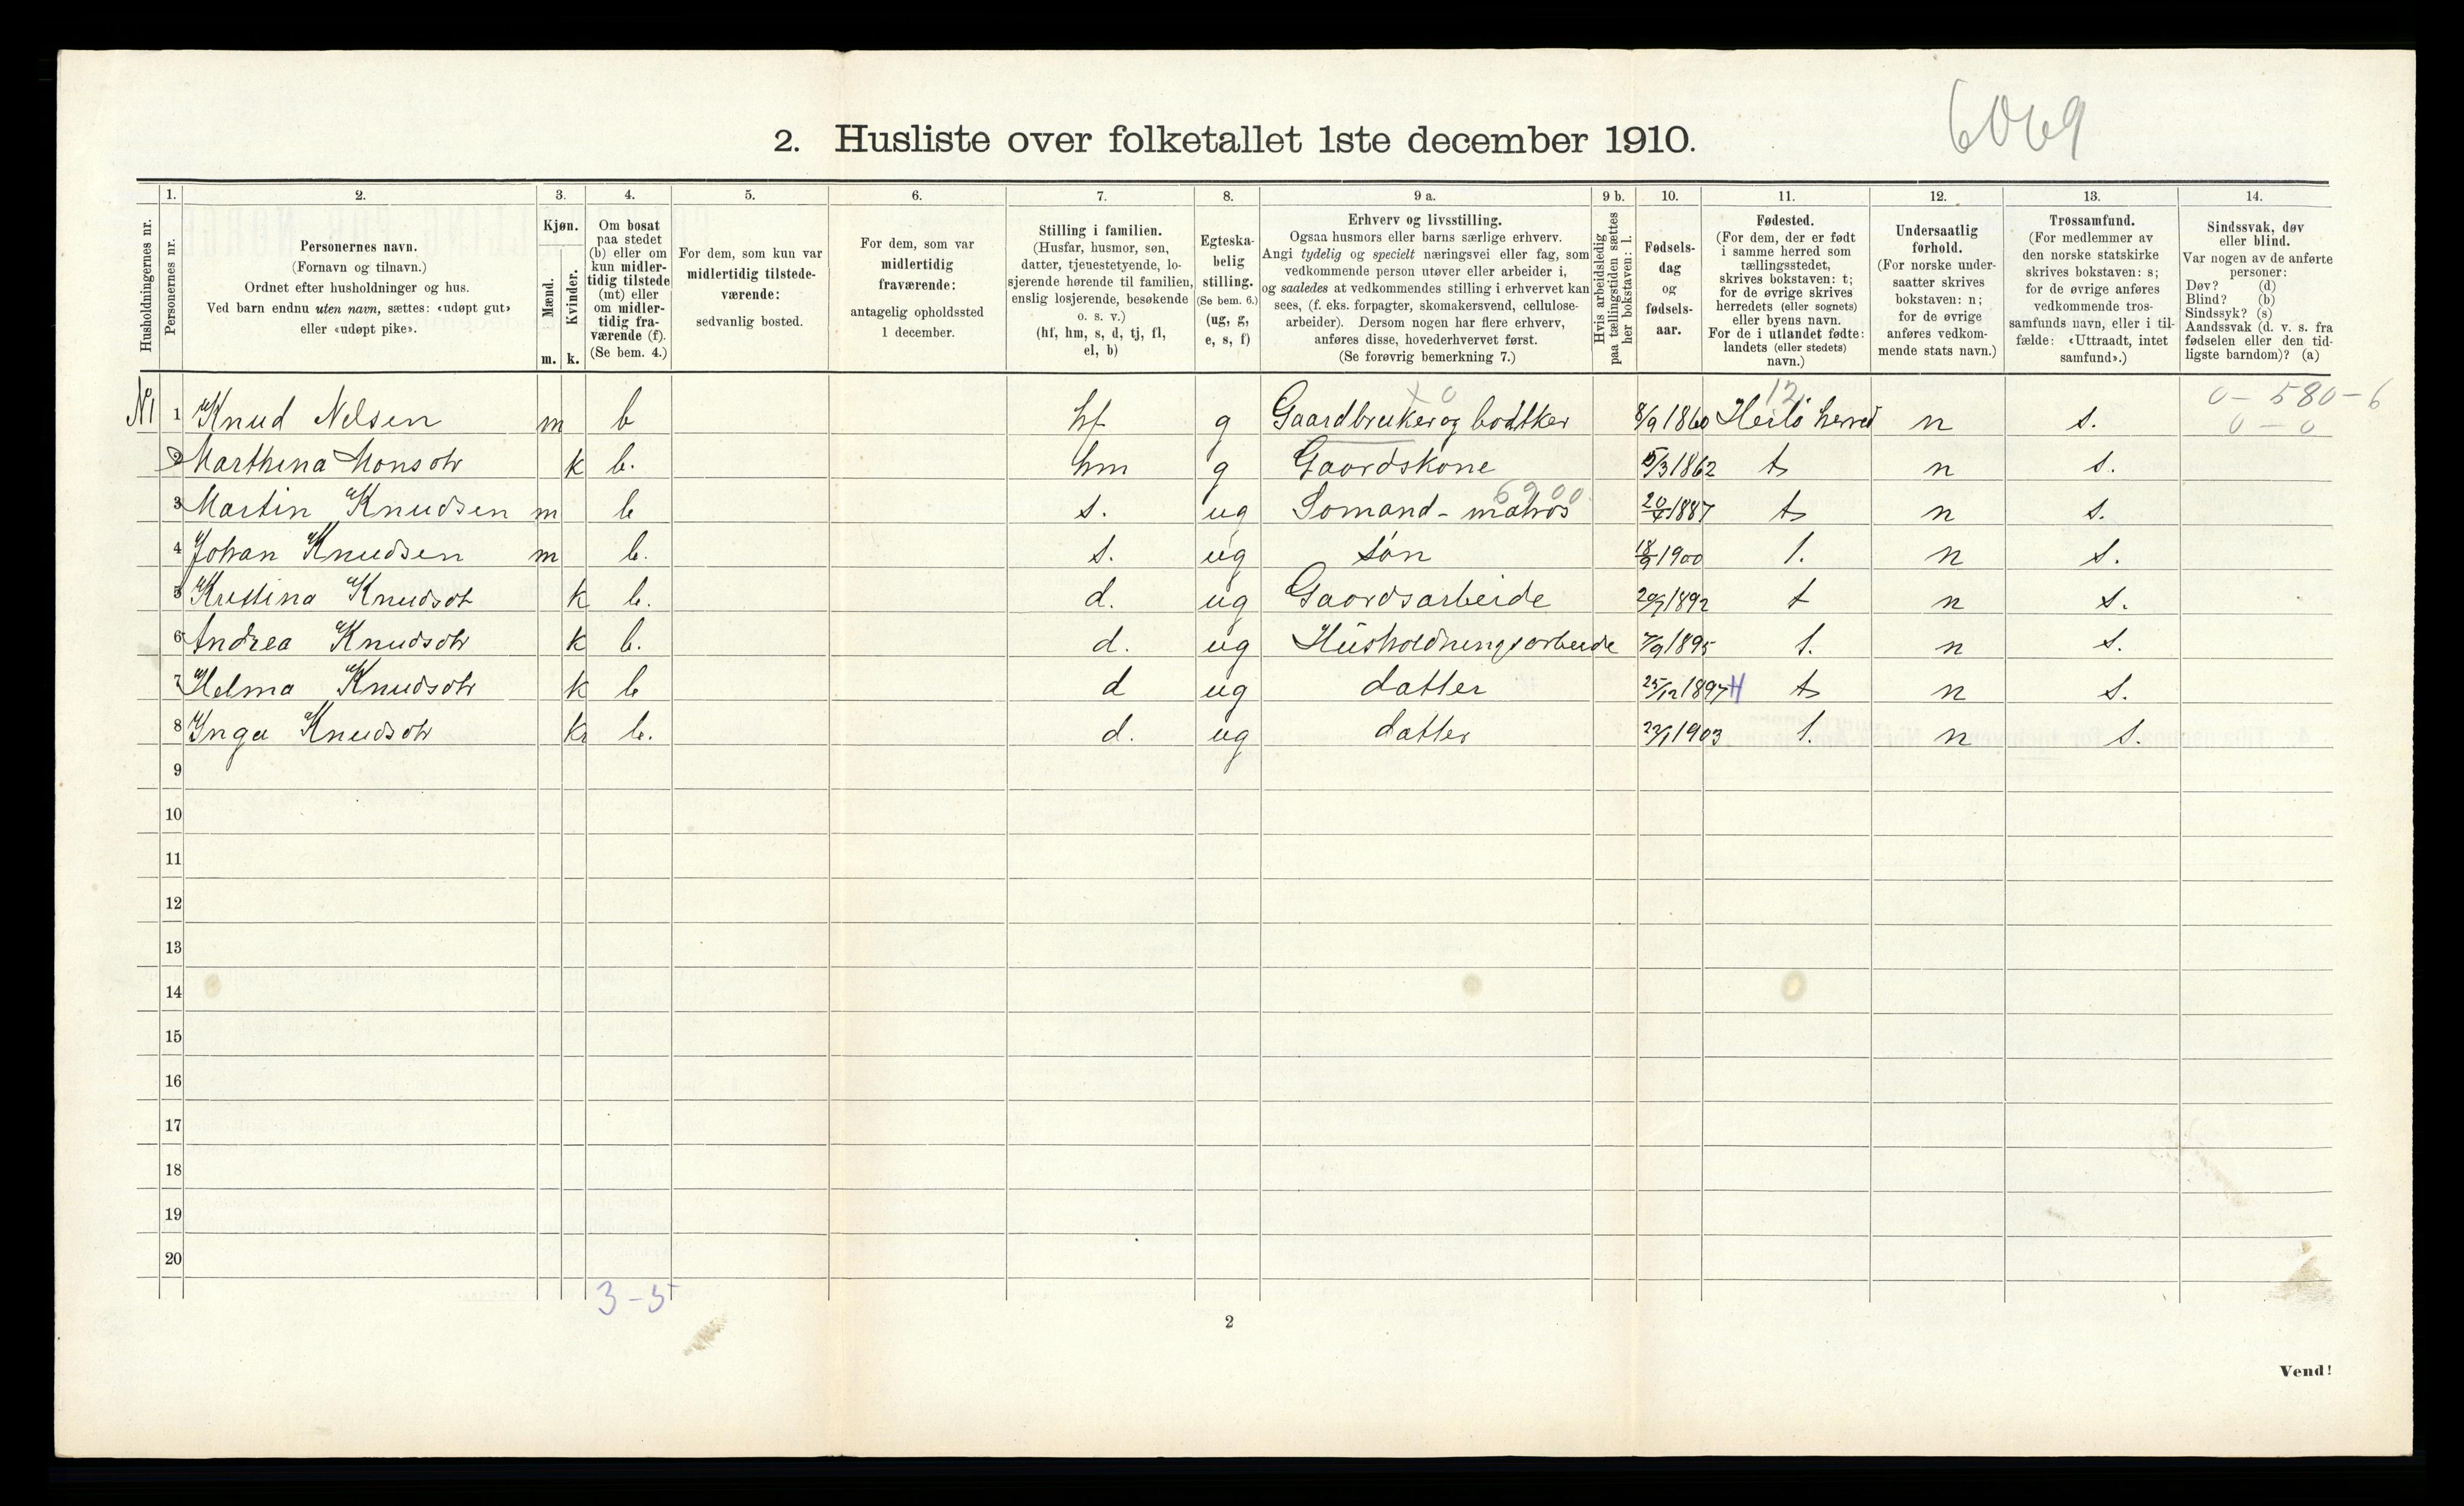 6069
2. Husliste over folketallet 1ste december 1910.
Husholdningernes nr.
1.
Personernes nr.
2.
Personernes navn.
(Fornavn og tilnavn.)
Ordnet efter husholdninger og hus.
Ved barn endnu uten navn, sættes: «udøpt gut»
eller «udøpt pike».
3.
Kjøn.
Mænd.
Kvinder.
m. k.
4.
Om bosat
paa stedet
(b) eller om
kun midler-
tidig tilstede
(mt) eller
om midler-
tidig fra-
værende (f).
(Se bem. 4.)
5.
For dem, som kun var
midlertidig tilstede-
værende:
sedvanlig bosted.
6.
For dem, som var
midlertidig
fraværende:
antagelig opholdssted
1 december.
7.
Stilling i familien.
(Husfar, husmor, søn,
datter, tjenestetyende, lo-
sjerende hørende til familien,
enslig losjerende, besøkende
o. s. v.)
(hf, hm, s, d, tj, fl,
el, b)
8.
Egteska-
belig
stilling.
(Se bem. 6.)
(ug, g,
e, s, f)
9 a.
Erhverv og livsstilling.
Ogsaa husmors eller barns særlige erhverv.
Angi tydelig og specielt næringsvei eller fag, som
vedkommende person utøver eller arbeider i,
og saaledes at vedkommendes stilling i erhvervet kan
sees, (f. eks. forpagter, skomakersvend, cellulose-
arbeider). Dersom nogen har flere erhverv,
anføres disse, hovederhvervet først.
(Se forøvrig bemerkning 7.)
9 b.
Hvis arbeidsledig
paa tællingstiden sættes
her bokstaven: l.
10.
Fødsels-
dag
og
fødsels-
aar.
11.
Fødested.
(For dem, der er født
i samme herred som
tællingsstedet,
skrives bokstaven: t;
for de øvrige skrives
herredets (eller sognets)
eller byens navn.
For de i utlandet fødte:
landets (eller stedets)
navn.)
12.
Undersaatlig
forhold.
(For norske under-
saatter skrives
bokstaven: n;
for de øvrige
anføres vedkom-
mende stats navn.)
13.
Trossamfund.
(For medlemmer av
den norske statskirke
skrives bokstaven: s;
for de øvrige anføres
vedkommende tros-
samfunds navn, eller i til-
fælde: «Uttraadt, intet
samfund».)
14.
Sindssvak, døv
eller blind.
Var nogen av de anførte
personer:
Døv? (d)
Blind? (b)
Sindssyk? (s)
Aandssvak (d. v. s. fra
fødselen eller den tid-
ligste barndom)? (a)
x 0 12 0 - 580 - 6
N1 1 Knud Nelsen m b hf g Gaardbruker og bødtker 8/9 1860 Herlö herred n s. 0 - 0
2 Marthina Monsdtr k b. hm g Gaardskone 5/3 1862 t n s.
6900
3 Martin Knudsen m b s. ug Somand - matros 20/7 1887 t n s.
4 Johan Knudsen m b. s. ug søn 18/9 1900 t. n s.
5 Kristina Knudsdt k b. d. ug Gaardsarbeide 20/7 1892 t n s.
6 Andrea Knudsdtr k b. d. ug Husholdningsarbeide 7/9 1895 t. n s.
7 Helma Knudsdtr k b d ug datter 25/12 1897 H t n s.
8 Inga Knudsdtr k b. d. ug datter 22/1 1903 t. n s.
9
10
11
12
13
14
15
16
17
18
19
20
3 - 5
2
Vend!